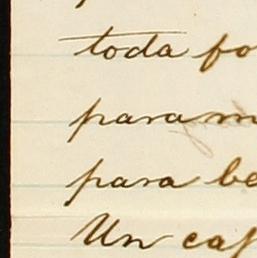 toda fo
para m
para be
Un caf